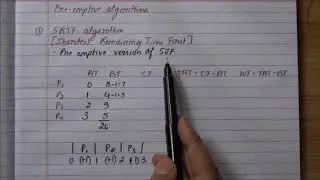 Pre-emptive algorithm
① SRTF algorithm
[Shortest Remaining Time First]
- Pre emptive version of SJF
AT BT CT TAT = CT - AT WT = TAT - BT
P1 0 8-1=7
P2 1 4-1=3
P3 2 9
P4 3 5
26
| P1 | P2 | P3 |
0 (+1) 1 (+1) 2 (+1) 3